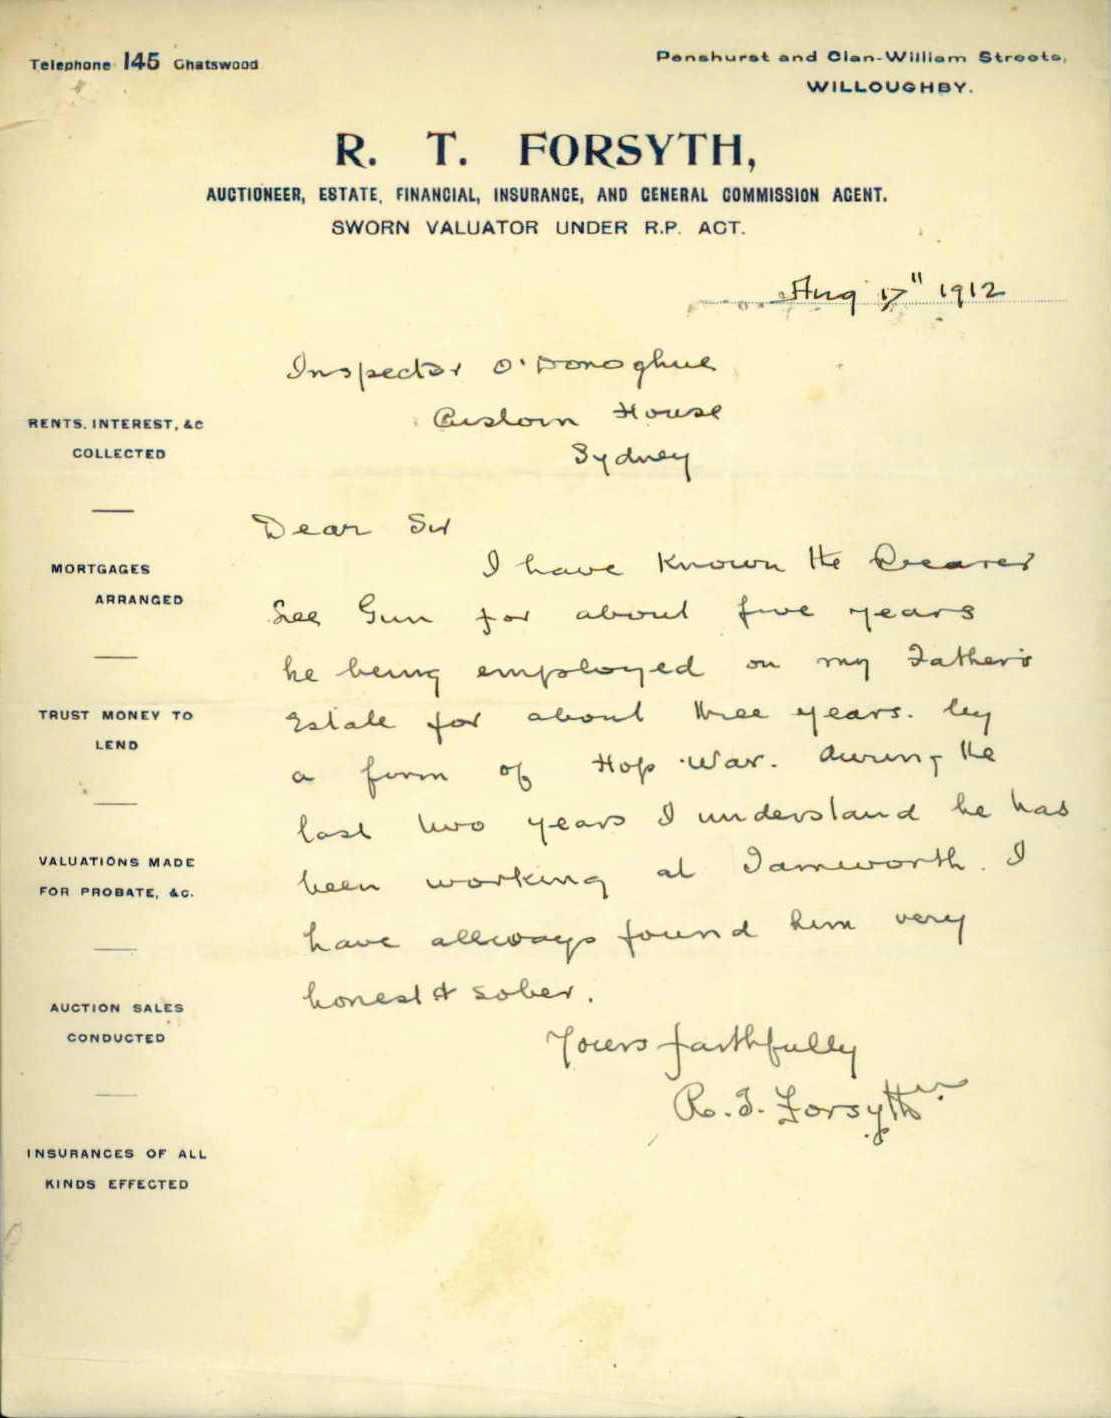 Telephone 145 Chatswood
Penshurst and Clan-William Streets,
WILLOUGHBY.
R. T. FORSYTH,
AUCTIONEER, ESTATE, FINANCIAL, INSURANCE, AND GENERAL COMMISSION AGENT.
SWORN VALUATOR UNDER R.P. ACT.
Aug 17" 1912
Inspector O'Donoghue
Custom House
Sydney
Dear Sir
I have known the Bearer
See Gun for about five years
he being employed on my Father's
Estate for about three years. by
a firm of Hop War. during the
last two years I understand he has
been working at Tamworth. I
have allways found him very
honest & sober.
Yours faithfully
R. T. Forsyth
RENTS, INTEREST, &C
COLLECTED
MORTGAGES
ARRANGED
TRUST MONEY TO
LEND
VALUATIONS MADE
FOR PROBATE, &C.
AUCTION SALES
CONDUCTED
INSURANCES OF ALL
KINDS EFFECTED